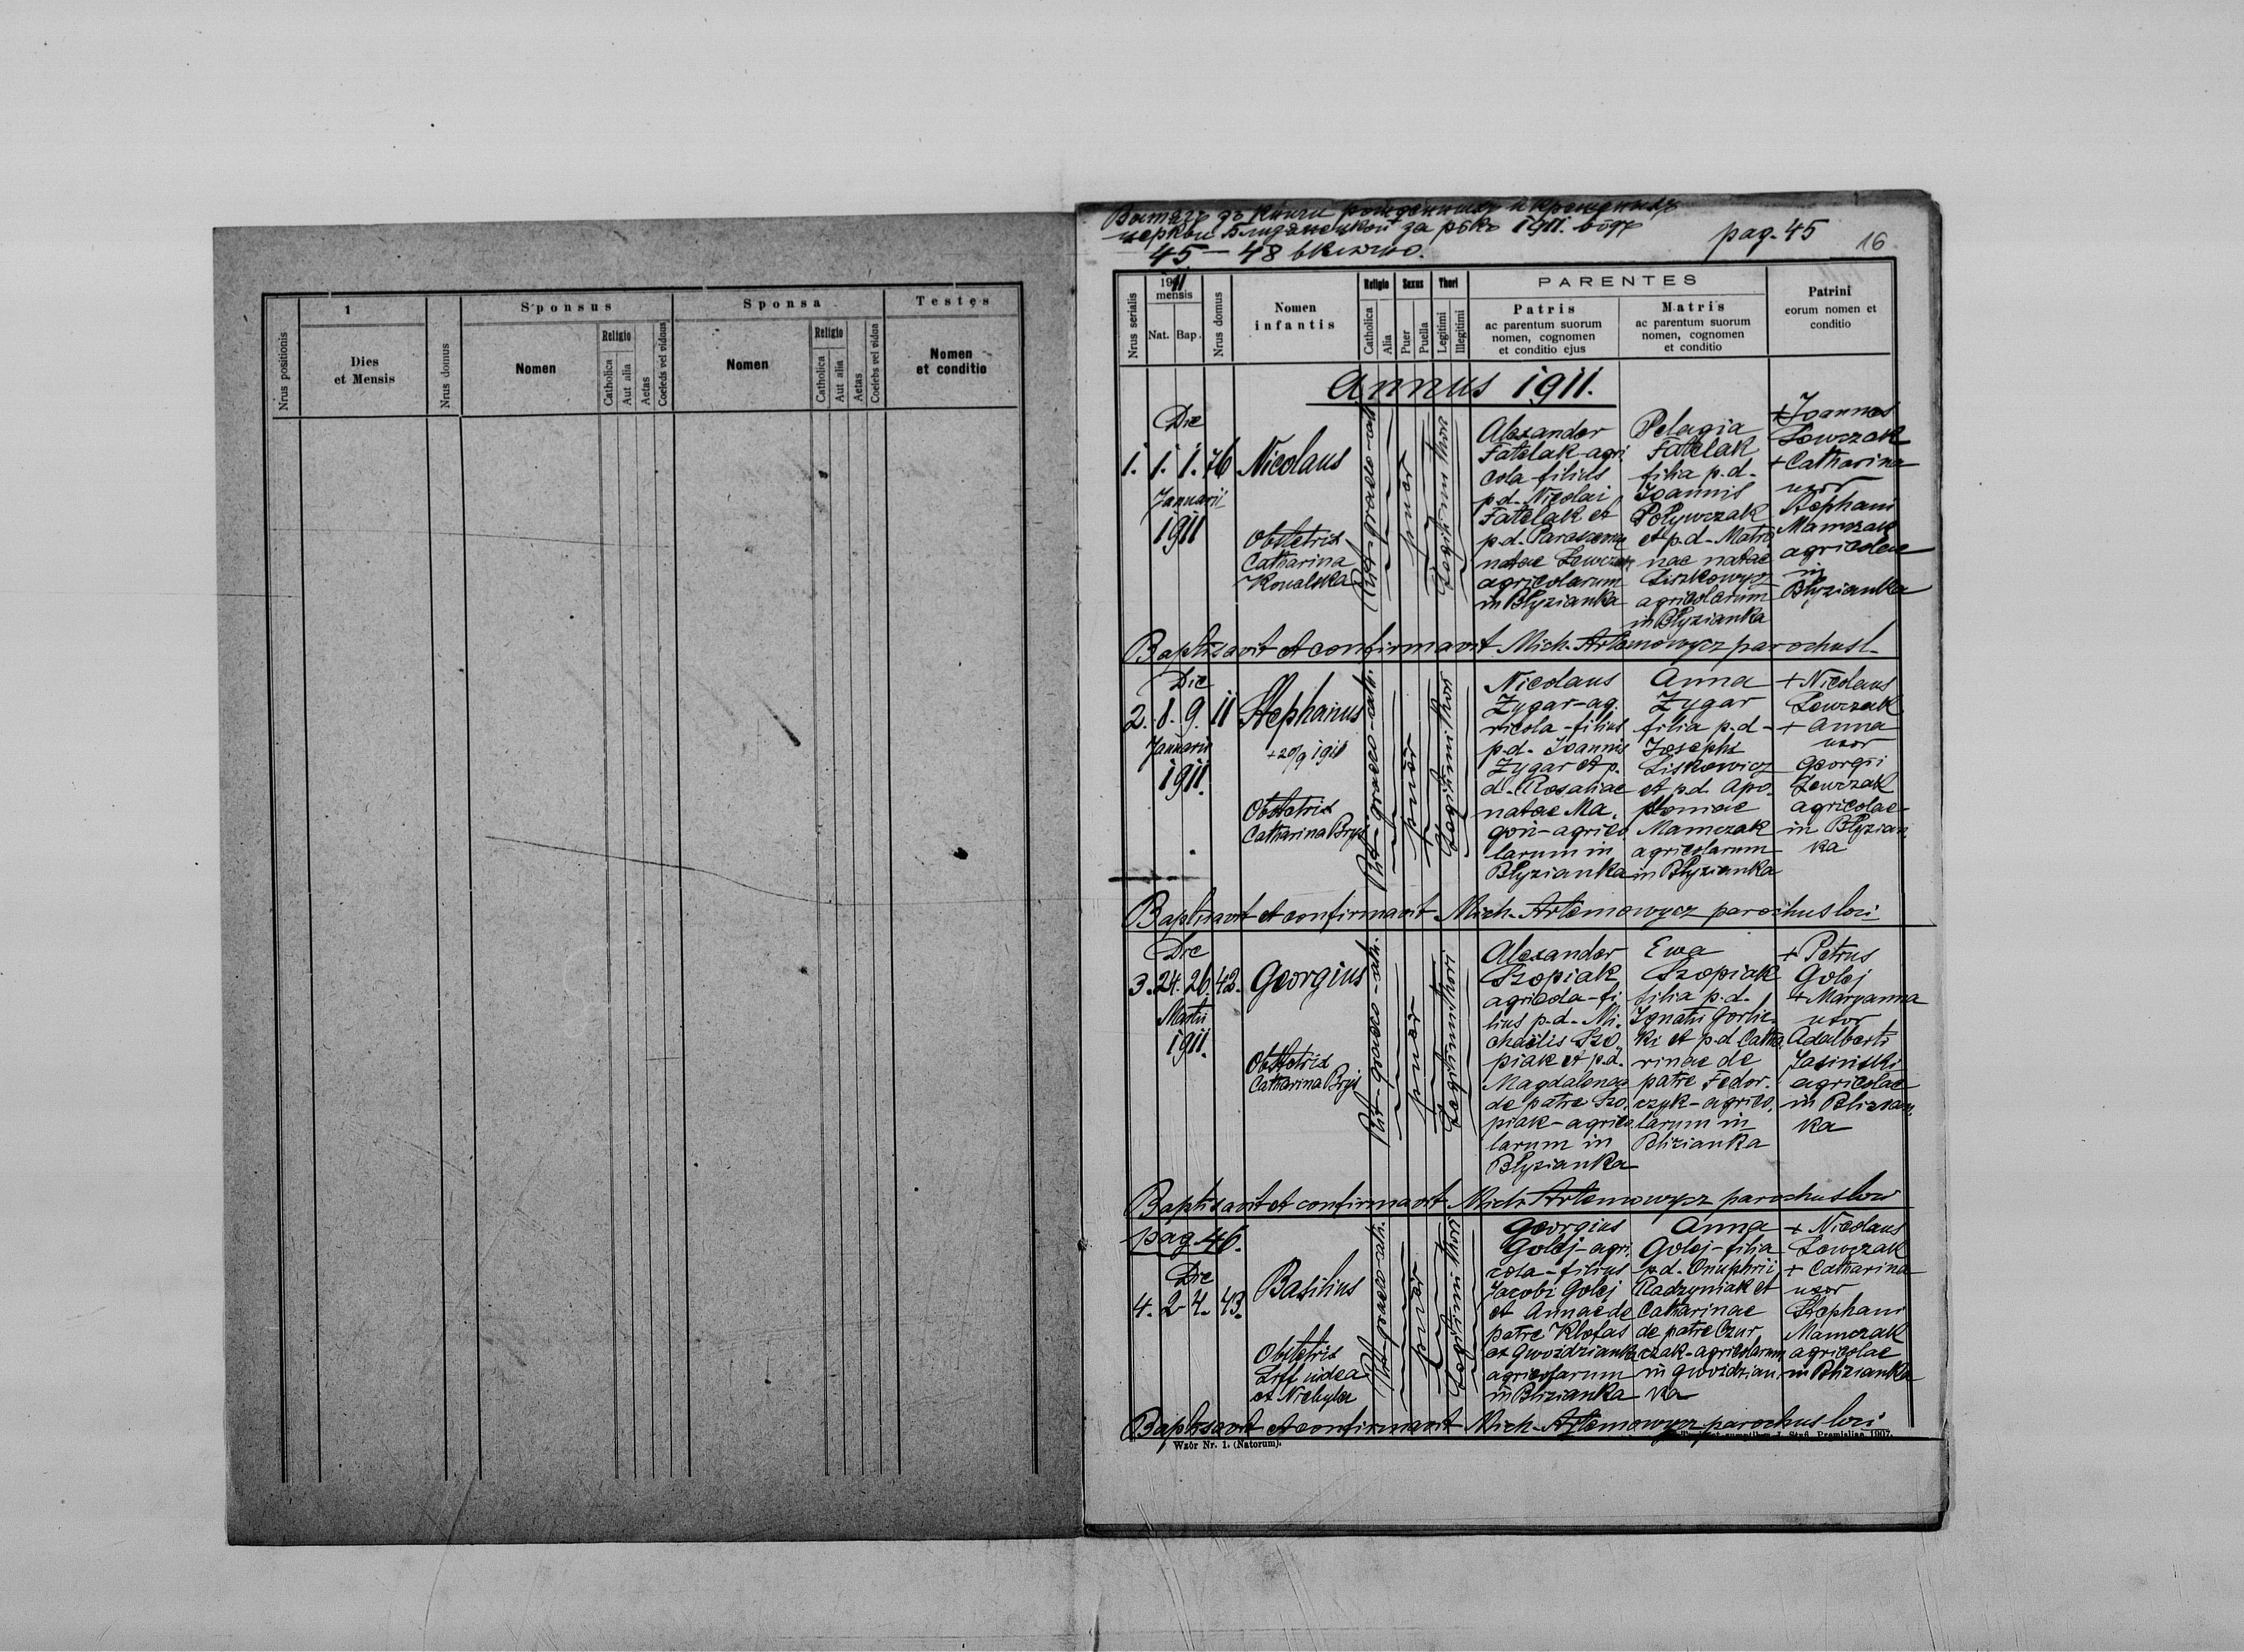 1
Sponsus
Sponsa
Testes
Nrus positionis
Dies
et Mensis
Nrus domus
Nomen
Religio
Catholica
Aut alia
Aetas
Coelebs vel viduus
Nomen
Religio
Catholica
Aut alia
Aetas
Coelebs vel vidua
Nomen
et conditio
церкви Близянецкои за рôкъ 1911. вôдъ
45 – 48 включно.
pag. 45
16
Nrus serialis
1911
mensis
Nat.
Bap.
Nrus domus
Nomen
infantis
Religio
Catholica
Alia
Sexus
Puer
Puella
Thori
Legitimi
Illegitimi
PARENTES
Patris
ac parentum suorum
nomen, cognomen
et conditio ejus
Matris
ac parentum suorum
nomen, cognomen
et conditio
Patrini
eorum nomen et
conditio
Annus 1911.
1.
Die
1. 1.
Januarii
1911
76
Nicolaus
Obstetrix
Catharina
Kowalska
Rit. graeco-cath.
puer
Legitimi thori
Alexander
Fatelak-agri
cola filius
p.d. Nicolai
Fatelak et
p.d. Parascevae
natae Lewczak
agricolarum
in Błyzianka
Pelagia
Fatelak
filia p.d.
Joannis
Poływczak
et p.d. Matro
nae natae
Liszkowycz
agricolarum
in Błyzianka
+ Joannes
Lewczak
+ Catharina
uxor
Stephani
Mamczak
agricolae
in
Błyzianka
Baptisavit et confirmavit Mich. Artemowycz parochus l.
2.
Die
8. 9.
Januarii
1911.
11
Stephanus
Obstetrix
Catharina Bryś
Rit. graeco-cath.
puer
Legitimi thori
Nicolaus
Zygar-ag.
ricola-filius
p.d. Joannis
Zygar et p.
d. Rosaliae
natae Ma.
goń-agrico
larum in
Błyzianka
Anna
Zygar
filia p.d.
Josephi
Liskowicz
et p.d. Apo.
lloniae
Mamczak
agricolarum
in Błyzianka
+ Nicolaus
Lewczak
+ Anna
uxor
Georgii
Lewczak
agricolae
in Błyzian.
ka
Baptisavit et confirmavit Mich. Artemowycz parochus loci
3.
Die
24. 26.
Martii
1911.
42.
Georgius
Obstetrix
Catharina Bryś
Rit. graeco-cath.
puer
Legitimi thori
Alexander
Szopiak
agricola-fi.
lius p.d. Mi.
chaelis Szo
piak et p.d.
Magdalenae
de patre Szo.
piak-agrico
larum in
Błyzianka
Ewa
Szopiak
filia p.d.
Ignatii Gorlic
ki et p.d. Catha
rinae de
patre Fedor.
czyk-agrico.
larum in
Blizianka
+ Petrus
Golej
+ Maryanna
uxor
Adalberti
Jasinski
agricolae
in Blizian.
ka
Baptisavit et confirmavit Mich. Artemowycz parochus loci
pag 46.
4.
Die
2 4.
43.
Basilius
Obstetrix
et Niebylec
Rit. graeco cath.
puer
Legitimi thori
Georgius
Golej-agri.
cola-filius
Jacobi Golej
et Annae de
patre Klofas
ex Gwoździanka
agricolarum
in Blizianka
Anna
Golej-filia
p.d. Onuphrii
Radzyniak et
Catharinae
de patre Czur.
czak-agricolarum
in Gwoździan.
ka
+ Nicolaus
Lewczak
+ Catharina
uxor
Stephani
Mamczak
agricolae
in Blizianka
Baptisavit et confirmavit Mich. Artemowycz parochus loci
Wzór Nr. 1. (Natorum).